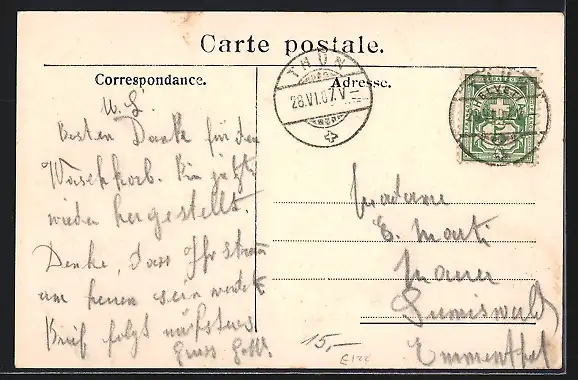 Carte postale.
Correspondance.
Adresse.
THUN
28.VI.07.V
HELVETIA
M. L.
Besten Dank für den
Waschkorb. Bin jetzt
wieder hergestellt.
Denke, dass Ihr
am heuen sein werdet
Brief folgt nächstens
Gruss
Madame
E. Marti
Sumiswald
Emmenthal
15,-